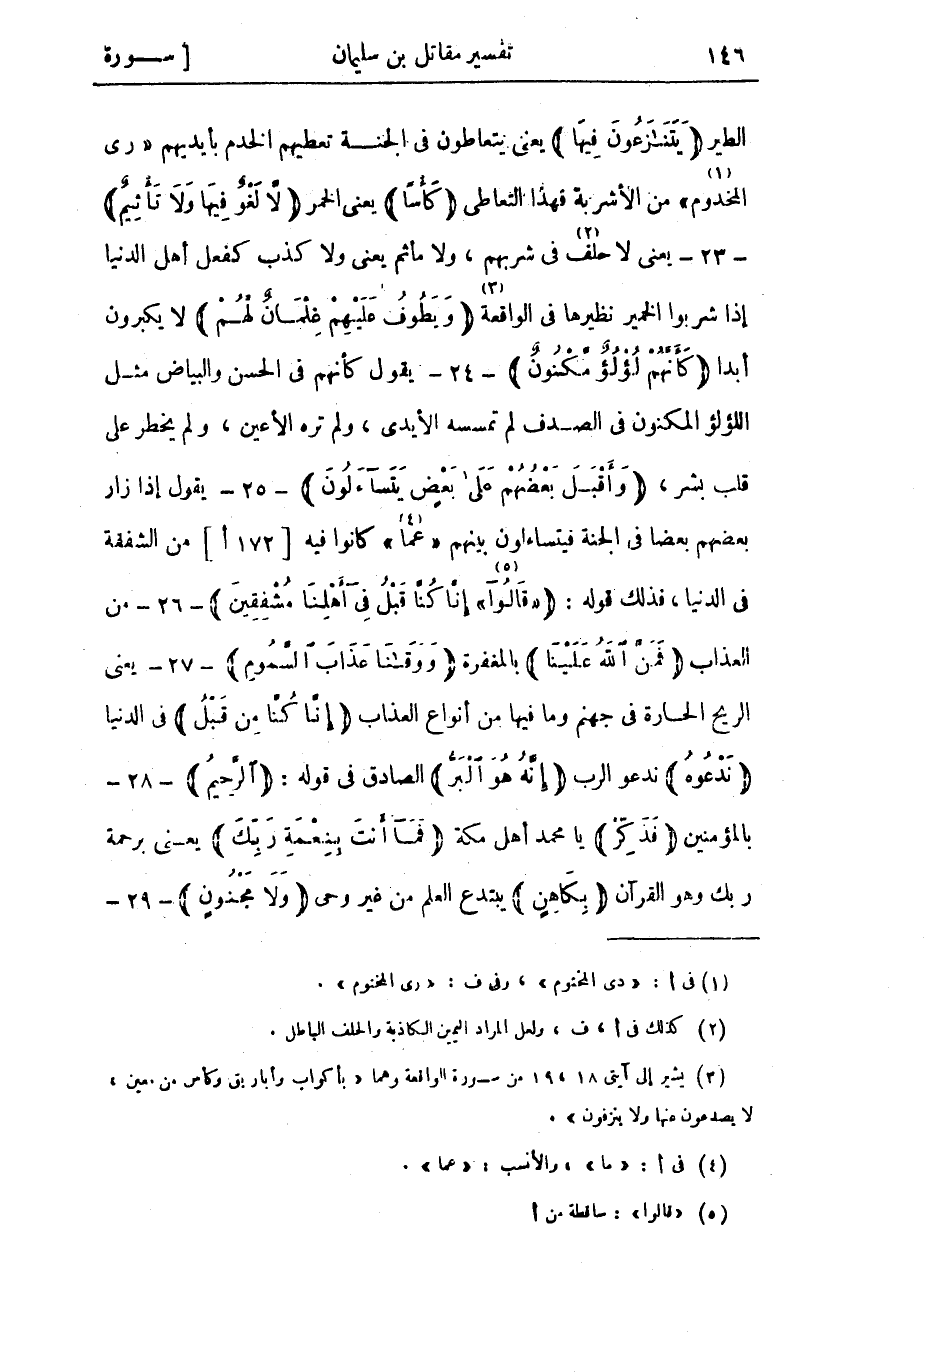 ١٤٦ تفسير مقاتل بن سليمان [ سـورة
الطير ﴿ يَتَنَـٰزَعُونَ فِيهَا ﴾ يعنى يتعاطون فى الجنـة تعطيهم الخدم بأيديهم « رى
المخدوم» (١) من الأشربة فهذا التعاطى ﴿ كَأْسًا ﴾ يعنى الخمر ﴿ لَّا لَغْوٌ فِيهَا وَلَا تَأْثِيمٌ﴾
- ٢٣ - يعنى لا حلف (٢) فى شربهم ، ولا مأثم يعنى ولا كذب كفعل أهل الدنيا
إذا شربوا الخمير نظيرها فى الواقعة (٣) ﴿ وَيَطُوفُ عَلَيْهِمْ غِلْمَـانٌ لَّهُـمْ ﴾ لا يكبرون
أبدا ﴿ كَأَنَّهُمْ لُؤْلُؤٌ مَّكْنُونٌ ﴾ - ٢٤ - يقول كأنهم فى الحسن والبياض مثـل
اللؤلؤ المكنون فى الصـدف لم تمسسه الأيدى ، ولم تره الأعين ، ولم يخطر على
قلب بشر ، ﴿ وَأَقْبَـلَ بَعْضُهُمْ عَلَىٰ بَعْضٍ يَتَسَآءَلُونَ ﴾ - ٢٥ - يقول إذا زار
بعضهم بعضا فى الجنة فيتساءلون بينهم « عما» (٤) كانوا فيه [ ١٧٢ أ ] من الشفقة
فى الدنيا ، فذلك قوله : ﴿ «قَالُوٓا» (٥) إِنَّا كُنَّا قَبْلُ فِىٓ أَهْلِنَا مُشْفِقِينَ ﴾ - ٢٦ - من
العذاب ﴿ فَمَنَّ ٱللَّهُ عَلَيْنَا ﴾ بالمغفرة ﴿ وَوَقَـٰنَا عَذَابَ ٱلسَّمُومِ ﴾ - ٢٧ - يعنى
الريح الحـارة فى جهنم وما فيها من أنواع العذاب ﴿ إِنَّا كُنَّا مِن قَبْلُ ﴾ فى الدنيا
﴿ نَدْعُوهُ ﴾ ندعو الرب ﴿ إِنَّهُ هُوَ ٱلْبَرُّ ﴾ الصادق فى قوله : ﴿ ٱلرَّحِيمُ ﴾ - ٢٨ -
بالمؤمنين ﴿ فَذَكِّرْ ﴾ يا محمد أهل مكة ﴿ فَمَآ أَنتَ بِنِعْمَةِ رَبِّكَ ﴾ يعـنى برحمة
ربك وهو القرآن ﴿ بِكَاهِنٍ ﴾ يبتدع العلم من غير وحى ﴿ وَلَا مَجْنُونٍ ﴾ - ٢٩ -
(١) فى أ : « دى المختوم » ، وفى ف : « رى المختوم » .
(٢) كذلك فى أ ، ف ، ولعل المراد اليمين الكاذبة والحلف الباطل .
(٣) يشير إلى آيتى ١٨ ، ١٩ من سـورة الواقعة وهما « بأكواب وأباريق وكأس من معين ،
لا يصدعون عنها ولا ينزفون » .
(٤) فى أ : « ما» ، والأنسب : « عما» .
(٥) «قالوا» : ساقطة من أ